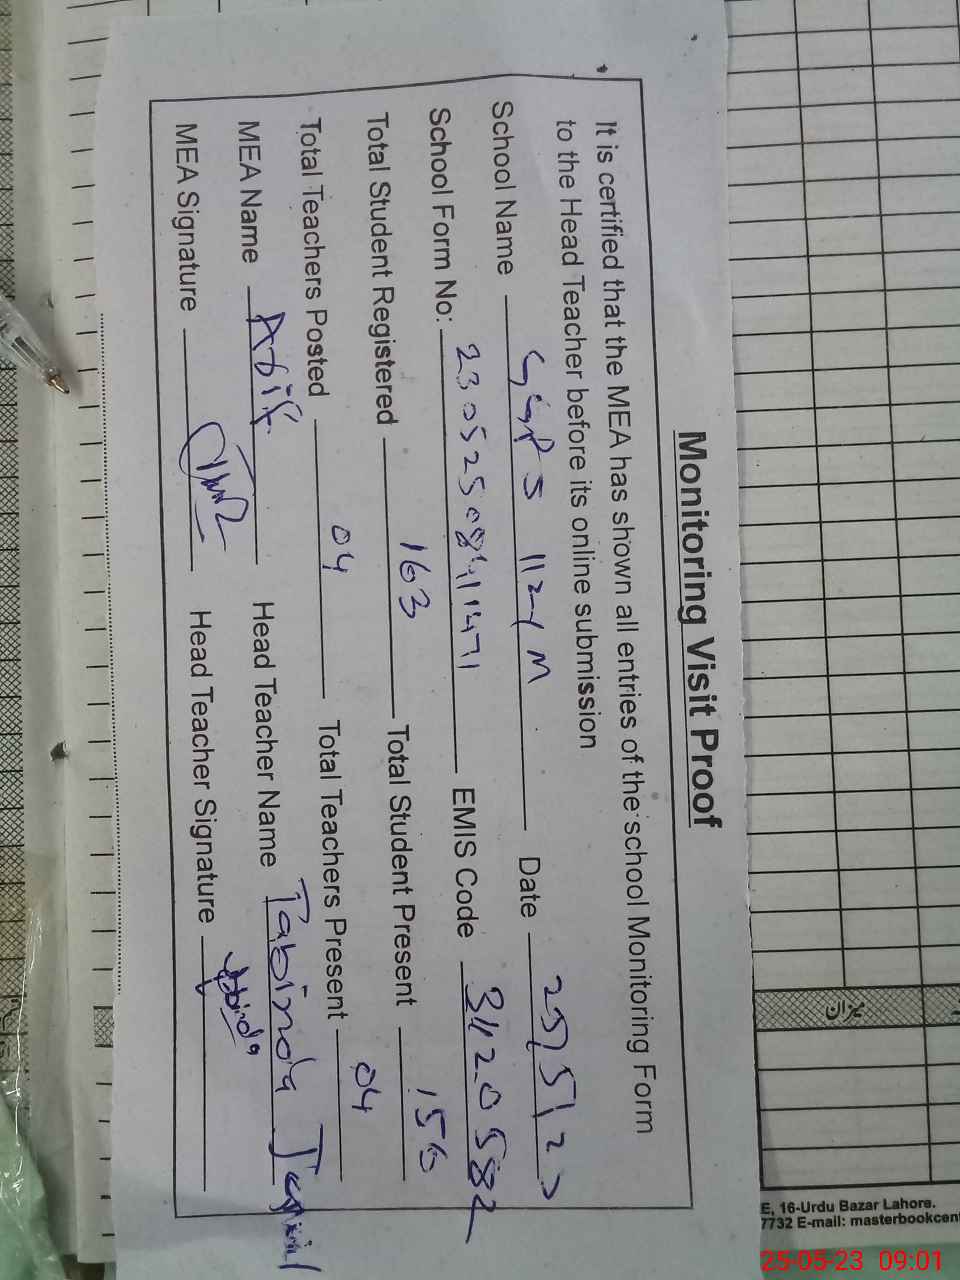 Monitoring Visit Proof
It is certified that the MEA has shown all entries of the school Monitoring Form
to the Head Teacher before its online submission
School Name GGPS 112-1 M Date 25/5/23
School Form No: 230525084111471 EMIS Code 31120582
Total Student Registered 163 Total Student Present 156
Total Teachers Posted 04 Total Teachers Present 04
MEA Name Head Teacher Name Tabinda
MEA Signature Head Teacher Signature Tabinda
میزان
E, 16-Urdu Bazar Lahore.
7732 E-mail: masterbookcent
25-05-23 09:01